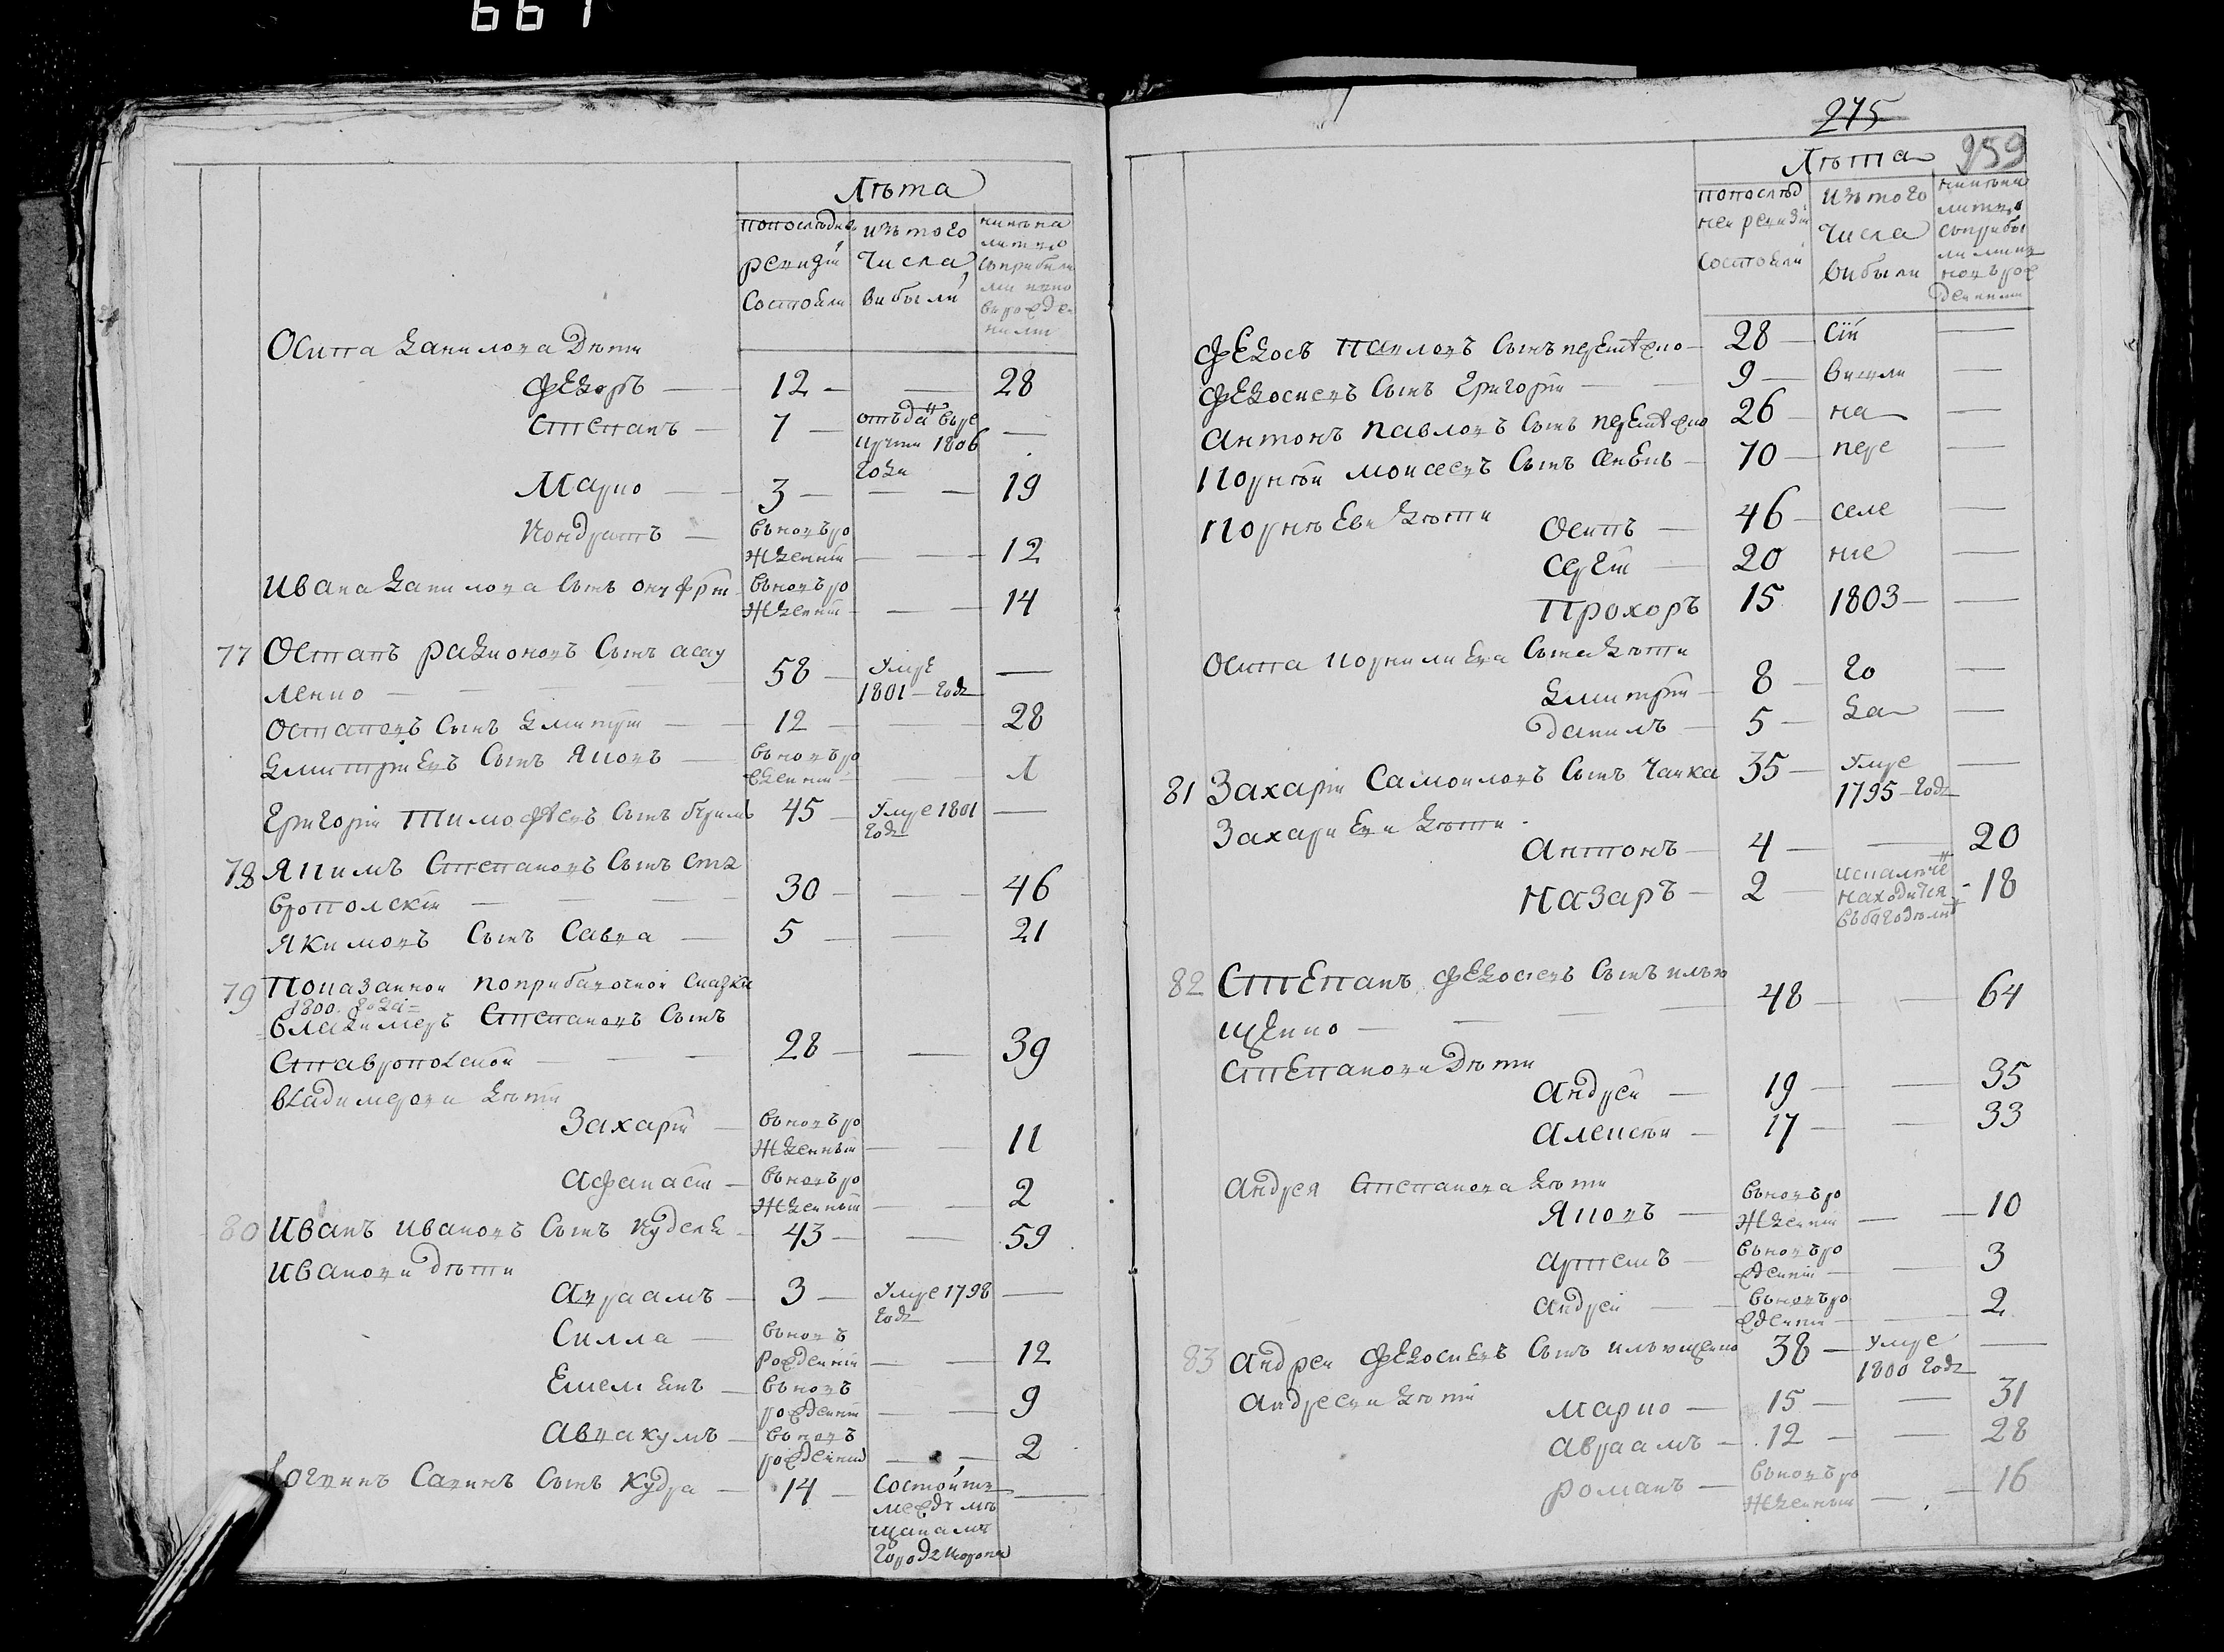 661
Лѣта
попоследней изътого нинѣна
ревизіи числа лицо
состояли выбыли
Осипа Данилова Дѣти
Федоръ — 12 — — 28
Степанъ — 7 — отъданъ въре —
крути 1806
года
Марко — 3 — — — 19
Кондратъ — въновъро
жденній — — 12
Ивана Данилова Сынъ Онуфрій въновъро
жденній — — 14
77 Остапъ Радионовъ Сынъ асау
ленко — 58 — Умре —
1801 — годъ
Остаповъ Сынъ Дмитрій — 12 — — 28
Дмитріевъ Сынъ Яковъ — въновъро
жденній — —
Григорій Тимофѣевъ Сынъ 45 — Умре 1801 —
годъ
78 Якимъ Степановъ Сынъ Ста
вропольскій — 30 — — 46
Якимовъ Сынъ Савва — 5 — — 21
79 Показанной поприбавочной сказки
1800 года
Владимеръ Степановъ Сынъ
Ставропольской — 28 — — 39
Владимерови Дѣти
Захарій — въновъро
жденный — — 11
Афанасій — въновъро
жденный — — 2
80 Иванъ Ивановъ Сынъ 43 — — 59
Иванови дѣти
Авраамъ — 3 — Умре 1798 —
годъ
Силла — въновъ
рожденній — — 12
Емельянъ — въновъ
рожденній — — 9
Аввакумъ — въновъ
рожденній — — 2
Логвинъ Савинъ Сынъ Кудра — 14 — Состоитъ —
междъ мѣ
щанами
города
275
259
Лѣта
попослѣд изътого нинѣна
ней ревизіи числа лицо
состояли выбыли
Федосъ Павловъ Сынъ 28 — Сіи —
Федосиевъ Сынъ Григорій — 9 — вишли —
Антонъ Павловъ Сынъ 26 — на —
Корнѣй Моисеевъ Сынъ 70 — пере —
Корнѣеви Дѣти Осипъ — 46 — селе —
Сергѣй — 20 ніе —
Прохоръ 15 1803 — —
Осипа Корнилиева Сына Дѣти
Дмитрій — 8 — го —
Данилъ — 5 — да —
81 Захарій Самоиловъ Сынъ Чайка 35 — Умре —
1795 — годъ
Захариеви Дѣти
Антонъ — 4 — — 20
Назаръ — 2 — 18
находится
82 Степанъ Федосиевъ Сынъ илью
щенко — 48 — — 64
Степанови Дѣти
Андрей — 19 — — 35
Алексѣй — 17 — — 33
Андрея Степанова Дѣти
Яковъ — въновъро
жденній — — 10
Артемъ — въновъро
жденній — — 3
Андрей — въновъро
жденній — — 2
83 Андрей Федосиевъ Сынъ ильющенко 38 — Умре —
1800 годъ
Андрееви Дѣти
Марко — 15 — — 31
Авраамъ — 12 — — 28
Романъ — въновъро
жденный — — 16